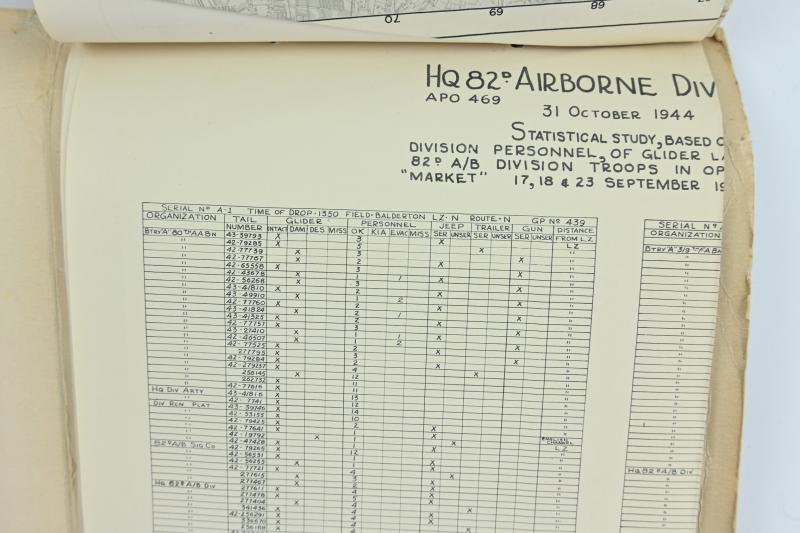 70
69
68
HQ 82D AIRBORNE DIV
APO 469
31 OCTOBER 1944
STATISTICAL STUDY, BASED O
DIVISION PERSONNEL, OF GLIDER LA
82D A/B DIVISION TROOPS IN OP
"MARKET" 17, 18 & 23 SEPTEMBER 19
SERIAL No A-1 TIME OF DROP-1350 FIELD-BALDERTON LZ-N ROUTE-N GP No 439
ORGANIZATION TAIL NUMBER GLIDER PERSONNEL JEEP TRAILER GUN DISTANCE FROM LZ
INTACT DAM DES MISS OK KIA EVAC MISS SER UNSER SER UNSER SER UNSER
BTRY "A" 80TH AA BN 43-39793 X 3 X LZ
" 42-79285 X 5 "
" 42-77739 X 3 X "
" 42-77767 X 2 X "
" 42-65558 X 3 X "
" 42-43678 X 1 1 "
" 42-56268 X 3 X X "
" 43-41810 X 2 "
" 43-49910 X 2 X X "
" 42-77760 X 1 2 "
" 43-41824 X 2 X "
" 43-41325 X 2 1 "
" 42-77757 X 3 X "
" 43-21410 X 1 1 X "
" 42-46507 X 1 2 X "
" 42-77525 X 2 "
" 277795 X 3 X "
" 42-79284 X 2 X "
" 42-279137 X 4 X "
" 256145 X 12 X "
" 262732 X 11 "
HQ DIV ARTY 42-77616 X 11 "
" 43-41816 X 13 "
DIV RCN PLAT 42-7741 X 12 "
" 43-39746 X 14 "
" 42-53155 X 10 "
" 42-79425 X 2 "
" 42-77641 X 1 X "
" 42-19792 X 1 X ENGLISH CHANNEL
82D A/B SIG CO 42-47428 X 1 X LZ
" 42-79265 X 12 X "
" 42-56531 X 1 "
" 42-56255 X 1 X "
" 42-77721 X 4 X "
" 277615 X 3 X "
" 277467 X 2 X "
HQ 82D A/B DIV 277611 X 4 X "
" 277478 X 5 X "
" 277404 X 4 X "
" 341436 X X "
" 42-256291 X 4 X "
" 336670 X 4 X "
" 256188 X 4 X "
SERIAL No A
ORGANIZATION
BTRY "A" 319TH FA BN
HQ 82D A/B DIV